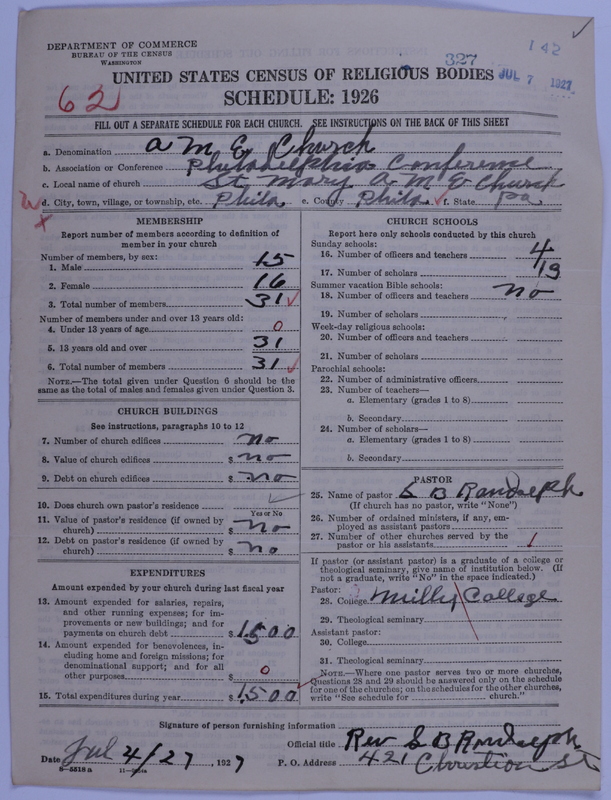 142
327
JUL 7 1927
DEPARTMENT OF COMMERCE
BUREAU OF THE CENSUS
WASHINGTON
UNITED STATES CENSUS OF RELIGIOUS BODIES
62
SCHEDULE: 1926
FILL OUT A SEPARATE SCHEDULE FOR EACH CHURCH. SEE INSTRUCTIONS ON THE BACK OF THIS SHEET
a. Denomination A M E Church
b. Association or Conference Philadelphia Conference
c. Local name of church St. Mary A M E Church
d. City, town, village, or township, etc. Phila. e. County Phila. f. State Pa
MEMBERSHIP
Report number of members according to definition of
member in your church
Number of members, by sex:
1. Male 15
2. Female 16
3. Total number of members 31
Number of members under and over 13 years old:
4. Under 13 years of age 0
5. 13 years old and over 31
6. Total number of members 31
NOTE.—The total given under Question 6 should be the
same as the total of males and females given under Question 3.
CHURCH BUILDINGS
See instructions, paragraphs 10 to 12
7. Number of church edifices no
8. Value of church edifices $ no
9. Debt on church edifices $ no
10. Does church own pastor's residence
Yes or No
11. Value of pastor's residence (if owned by
church) $ No
12. Debt on pastor's residence (if owned by
church) $ No
EXPENDITURES
Amount expended by your church during last fiscal year
13. Amount expended for salaries, repairs,
and other running expenses; for im-
provements or new buildings; and for
payments on church debt $ 1500
14. Amount expended for benevolences, in-
cluding home and foreign missions; for
denominational support; and for all
other purposes $ 0
15. Total expenditures during year $ 1,500
CHURCH SCHOOLS
Report here only schools conducted by this church
Sunday schools:
16. Number of officers and teachers 4
17. Number of scholars 19
Summer vacation Bible schools:
18. Number of officers and teachers no
19. Number of scholars
Week-day religious schools:
20. Number of officers and teachers
21. Number of scholars
Parochial schools:
22. Number of administrative officers
23. Number of teachers—
a. Elementary (grades 1 to 8)
b. Secondary
24. Number of scholars—
a. Elementary (grades 1 to 8)
b. Secondary
PASTOR
25. Name of pastor S B Randolph
(If church has no pastor, write "None")
26. Number of ordained ministers, if any, em-
ployed as assistant pastors
27. Number of other churches served by the
pastor or his assistants 1
If pastor (or assistant pastor) is a graduate of a college or
theological seminary, give name of institution below. (If
not a graduate, write "No" in the space indicated.)
Pastor:
28. College College
29. Theological seminary
Assistant pastor:
30. College
31. Theological seminary
NOTE.—Where one pastor serves two or more churches,
Questions 28 and 29 should be answered only on the schedule
for one of the churches; on the schedules for the other churches,
write "See schedule for church."
Signature of person furnishing information
Official title Rev S B Randolph
Date Jul 4/27, 1927 P. O. Address 421 Christian St
8-5518 a